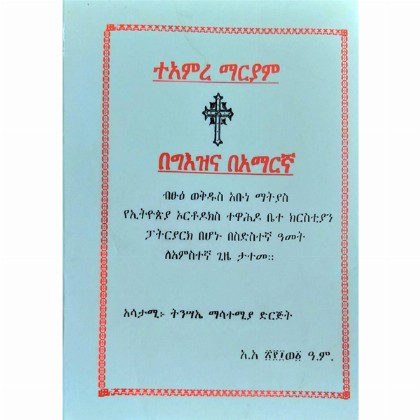 ተአምረ ማርያም
በግእዝና በአማርኛ
ብፁዕ ወቅዱስ አቡነ ማትያስ
የኢትዮጵያ ኦርቶዶክስ ተዋሕዶ ቤተ ክርስቲያን
ፓትርያርክ በሆኑ በስድስተኛ ዓመት
ለአምስተኛ ጊዜ ታተመ።
አሳታሚ፡ ትንሣኤ ማሳተሚያ ድርጅት
አ.አ ዓ.ም.